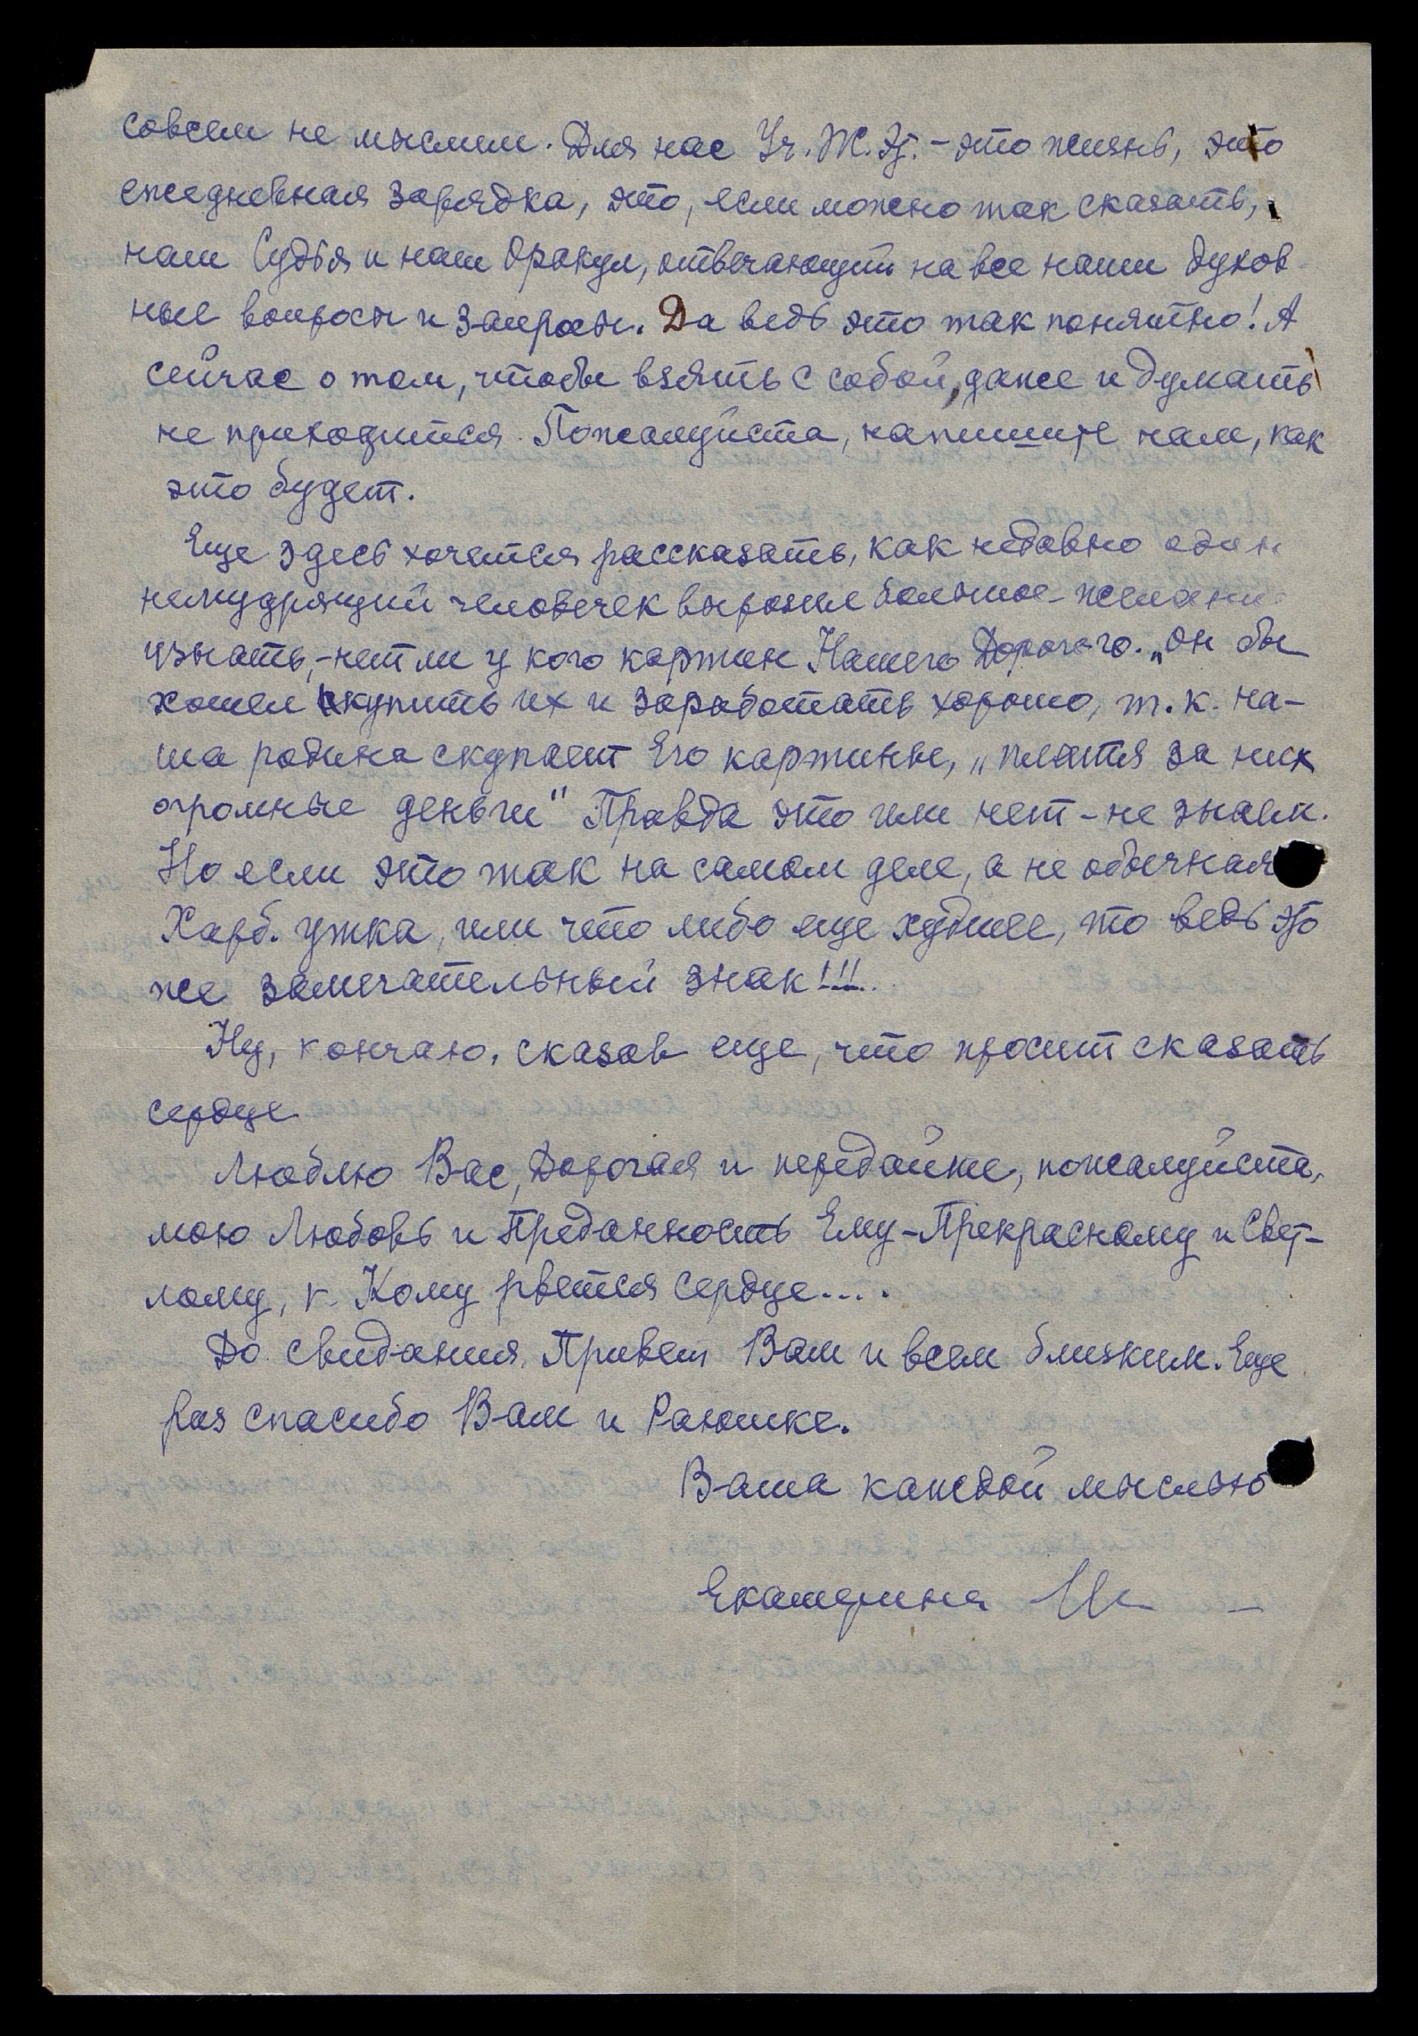 совсем не мыслим. Для нас Уч. Ж. Эт. – это жизнь, это
ежедневная зарядка, это, если можно так сказать,
наш Судья и наш Оракул, отвечающий на все наши духов-
ные вопросы и запросы. Да ведь это так понятно! А
сейчас о том, чтобы взять с собой, даже и думать
не приходится. Пожалуйста, напишите нам, как
это будет.
Еще здесь хочется рассказать, как недавно один
немудрящий человечек выразил большое желани
узнать, – нет ли у кого картин Нашего Дорогого. „Он бы
хотел скупить их и заработать хорошо, т. к. на-
ша родина скупает Его картины, „платя за них
огромные деньги" Правда это или нет – не знаем.
Но если это так на самом деле, а не обычная
Харб. утка, или что либо еще худшее, то ведь это
же замечательный знак!!!..
Ну, кончаю, сказав еще, что просит сказать
сердце
Люблю Вас, Дорогая и передайте, пожалуйста,
мою Любовь и Преданность Ему – Прекрасному и Свет-
лому, к Кому рвется сердце....
До свидания. Привет Вам и всем близким. Еще
раз спасибо Вам и Раюшке.
Ваша каждой мыслью
Екатерина